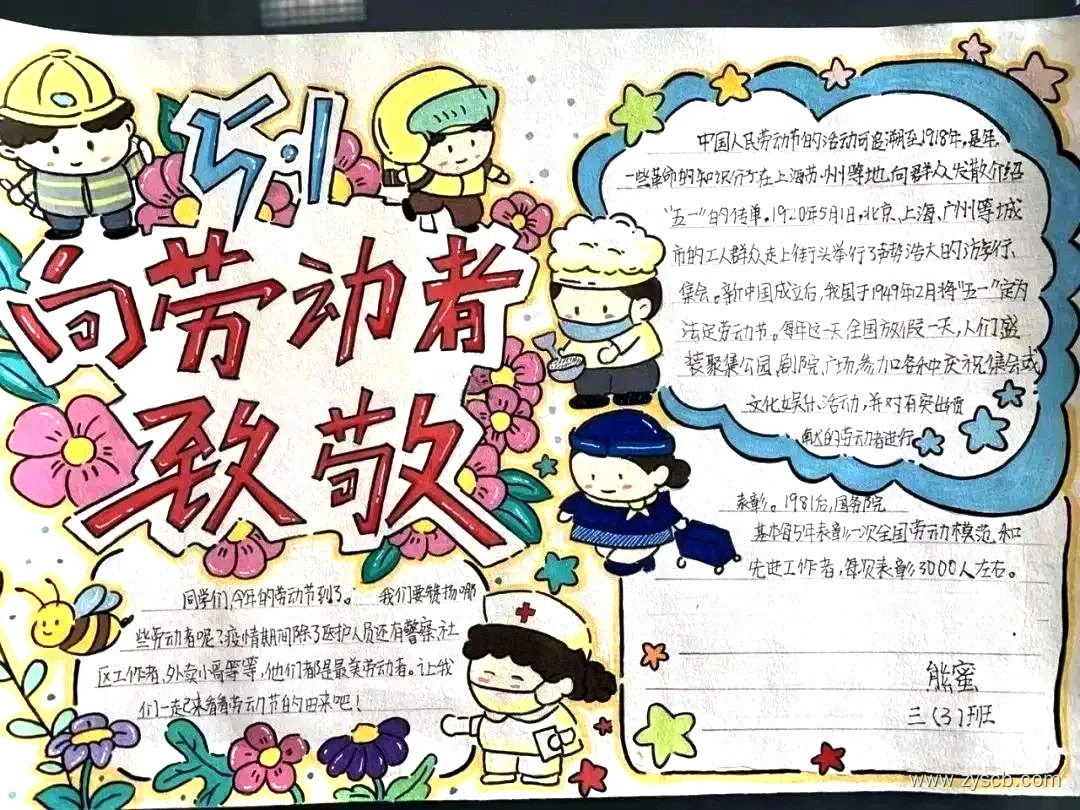 5.1
向劳动者
致敬
中国人民劳动节的活动可追溯至1918年，是年，
一些革命的知识分子在上海、苏州等地向群众发散介绍
"五一"的传单。1920年5月1日，北京、上海、广州等城
市的工人群众走上街头举行了声势浩大的游行、
集会。新中国成立后，我国于1949年12月将"五一"定为
法定劳动节。每年这一天，全国放假一天，人们盛
装聚集公园、剧院、广场，参加各种庆祝集会或
文化娱乐活动，并对有突出贡
献的劳动者进行
表彰。1981后，国务院
基本每5年表彰一次全国劳动模范和
先进工作者，每次表彰3000人左右。
熊蜜
三（3）班
同学们，今年的劳动节到了。 我们要赞扬哪
些劳动者呢？疫情期间除了医护人员还有警察、社
区工作者、外卖小哥等等，他们都是最美劳动者。让我
们一起来看看劳动节的由来吧！
www.zyscb.com